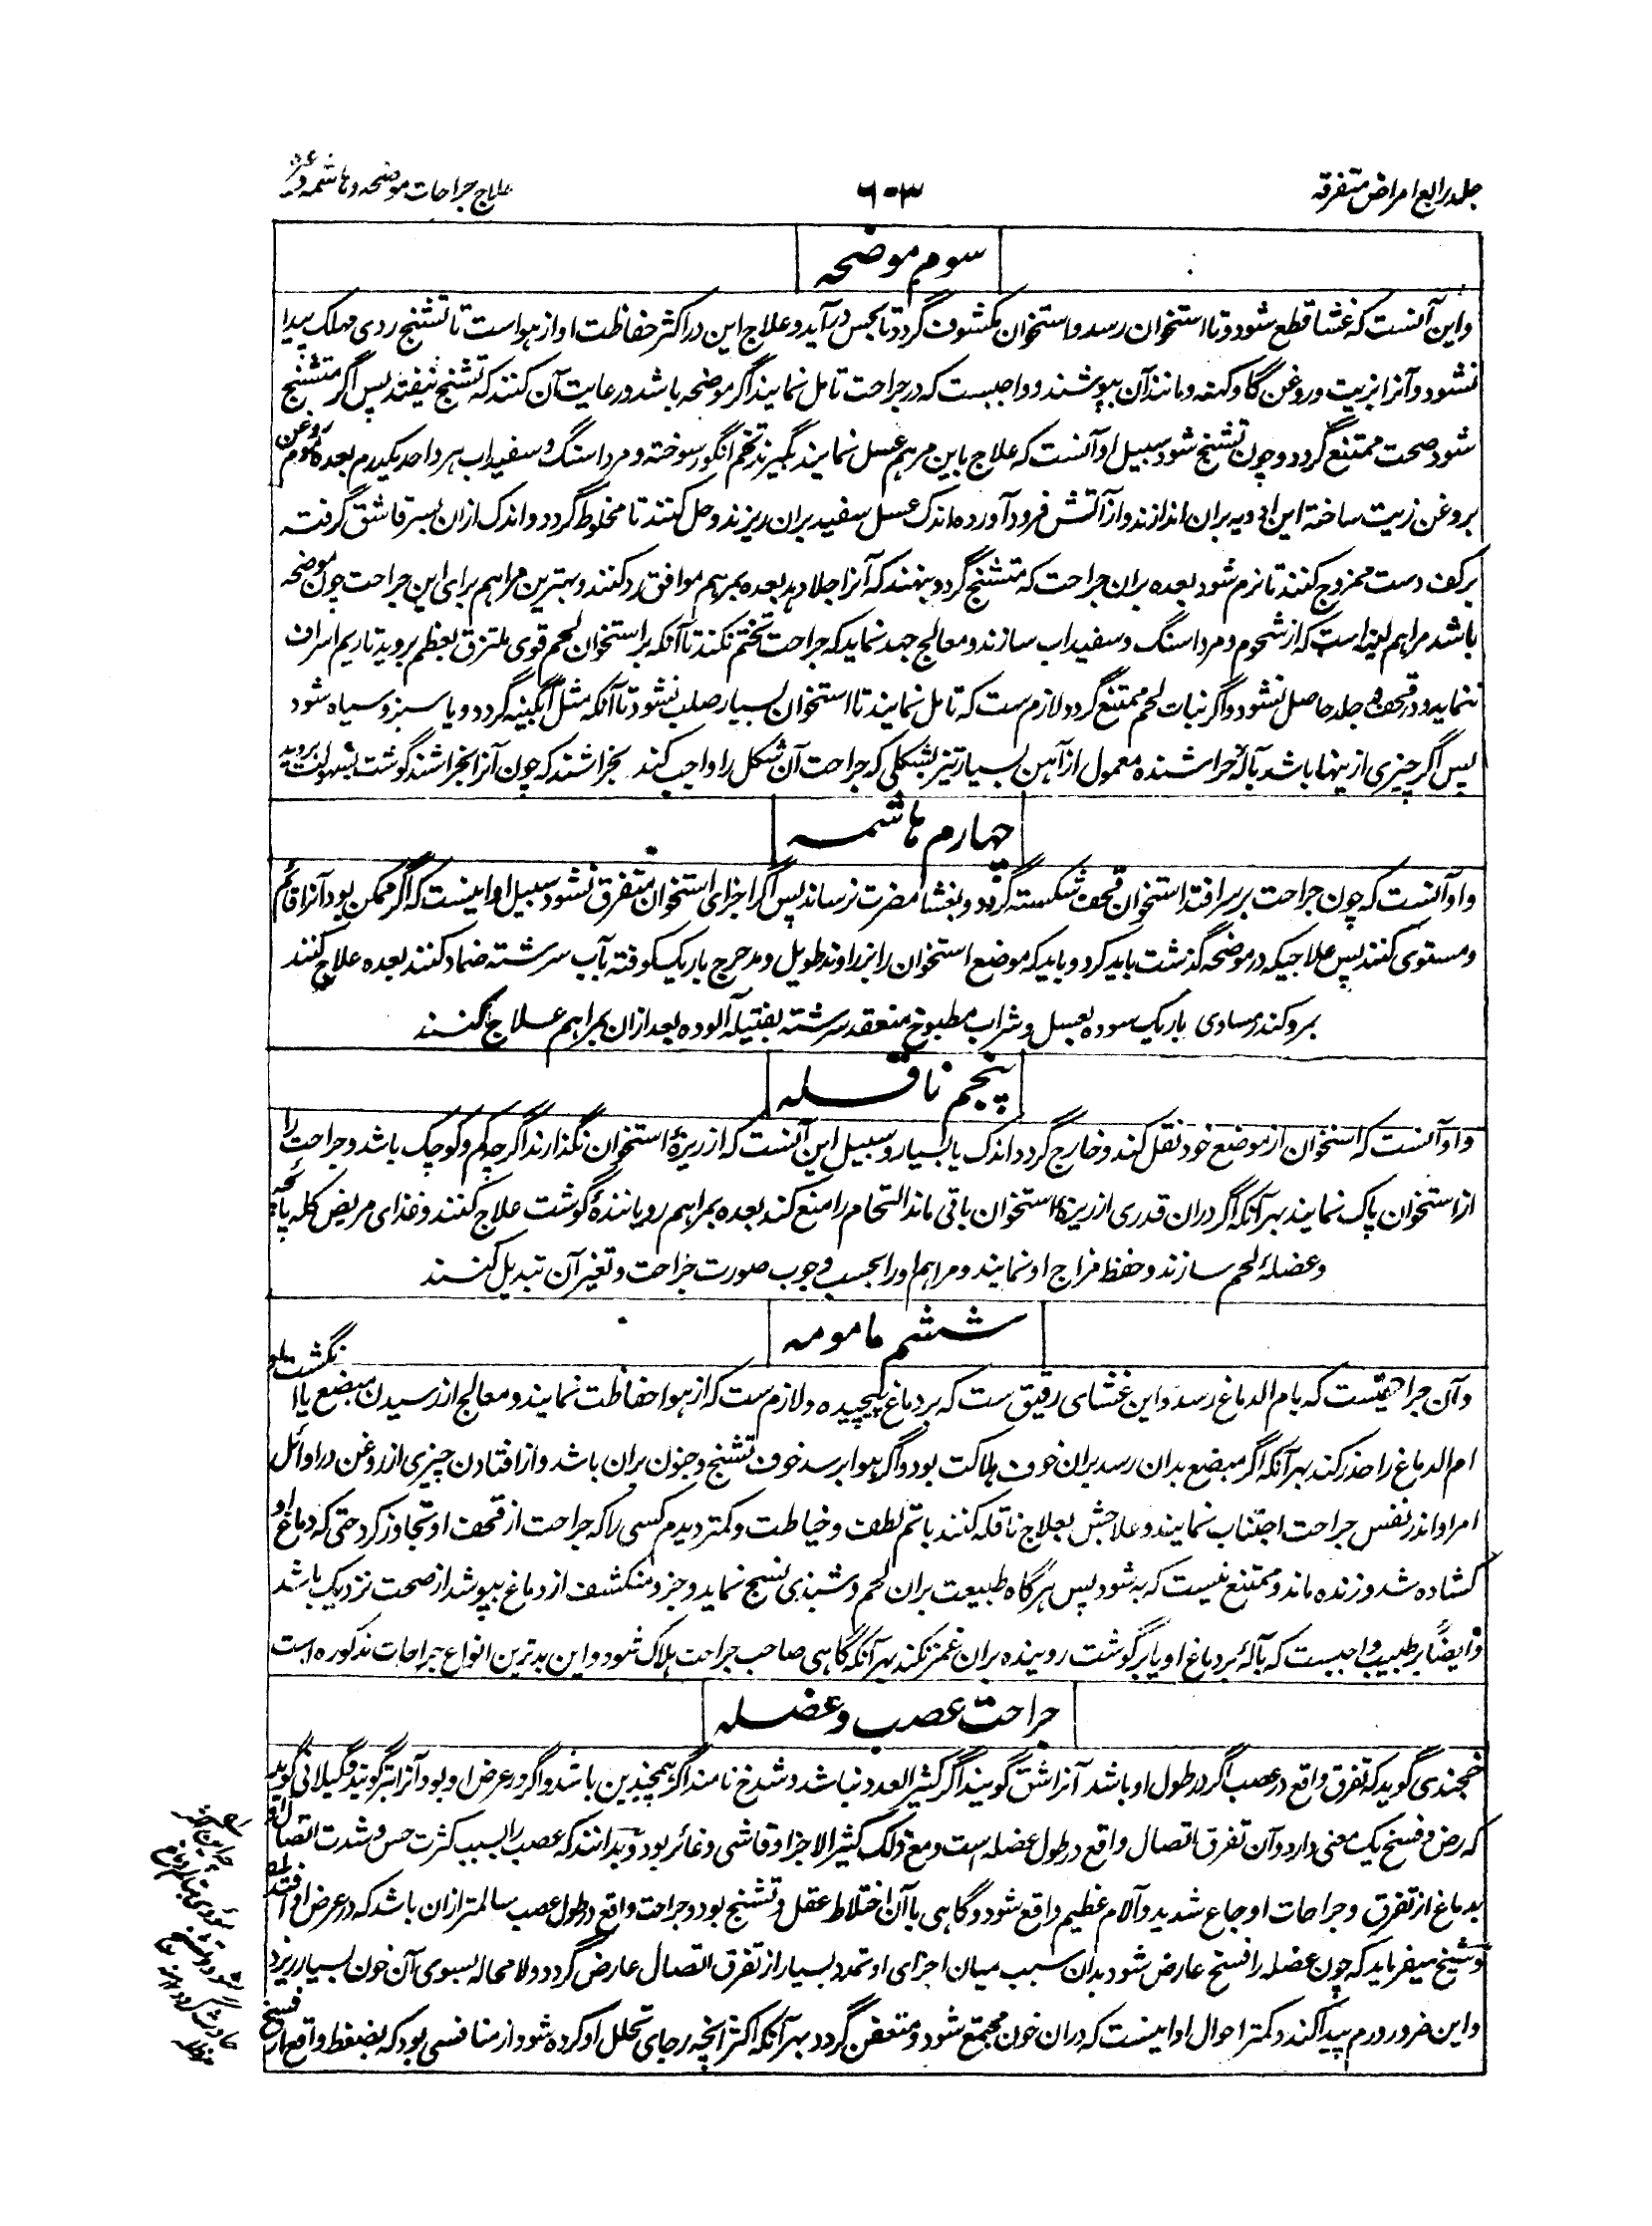 جلد رابع امراض متفرقه
۶۰۳
علاج جراحات موضحه و هاشمه و غیره
سوم موضحه
و این آنست که غشا قطع شود و تا استخوان رسد و استخوان مکشوف گردد تا بحس درآید و علاج این در اکثر حفاظت او از هواست تا تشنج ردی مهلک پیدا
نشود و آنرا بزیت و روغن گاو کهنه و مانند آن بپوشند و واجبست که در جراحت تامل نمایند اگر موضحه باشد و رعایت آن کنند که تشنج نیفتد پس اگر متشنج
شود صحت ممتنع گردد و چون تشنج شود سبیل او آنست که علاج باین مرهم عسل نمایند بگیرند تخم انگور سوخته و مرداسنگ و سفیداب هر واحد یکدرم بعده موم روغن
بروغن زیت ساخته این ادویه بران اندازند و از آتش فرود آورده اندک عسل سفید بران ریزند و حل کنند تا مخلوط گردد و اندک ازان بسر قاشق گرفته
بر کف دست ممزوج کنند تا نرم شود بعده بران جراحت که متشنج گردد بنهند که آنرا جلا دهد بعده بمرهم موافق رد کنند و بهترین مراهم برای این جراحت چون موضحه
باشد مراهم لینه است که از شحوم و مرداسنگ و سفیداب سازند و معالج جهد نماید که جراحت تختم نکند تا آنکه بر استخوان لحم قوی ملتزق بعظم بروید تا ریم اسراف
ننماید و در قحف جلد حاصل نشود و اگر نبات لحم ممتنع گردد لازمست که تامل نمایند تا استخوان بسیار صلب نشود تا آنکه مثل آبگینه گردد و یا سبز و سیاه شود
پس اگر چیزی ازینها باشد بآلهٔ خراشنده معمول از آهن بسیار تیز بشکلی که جراحت آن شکل را واجب کند بخراشند که چون آنرا بخراشند گوشت بسهولت بروید
چهارم هاشمه
و او آنست که چون جراحت بر سر افتد استخوان قحف شکسته گردد و بغشا مضرت نرساند پس اگر اجزای استخوان متفرق نشود سبیل او اینست که اگر ممکن بود آنرا قائم
و مستوی کنند پس علاجیکه در موضحه گذشت باید کرد و باید که موضع استخوان را بزراوند طویل و مدحرج باریک کوفته بآب سرشته ضماد کنند بعده علاج کنند
بمر و کندر مساوی باریک سوده بعسل و شراب مطبوخ منعقد سرشته بفتیله آلوده بعد ازان بمراهم علاج کنند
پنجم ناقله
و او آنست که استخوان از موضع خود نقل کند و خارج گردد اندک یا بسیار و سبیل این آنست که از ریزهٔ استخوان نگذارند اگرچه کم و کوچک باشد و جراحت را
از استخوان پاک نمایند بهر آنکه اگر دران قدری از ریزهٔ استخوان باقی ماند التحام را منع کند بعده بمراهم رویانندهٔ گوشت علاج کنند و غذای مریض کله پاچه
و عضلهٔ لحم سازند و حفظ مزاج او نمایند و مراهم او را بحسب وجوب صورت جراحت و تغیر آن تبدیل کنند
ششم مامومه
و آن جراحتیست که بام الدماغ رسد و این غشای رقیق ست که بر دماغ پیچیده و لازمست که از هوا حفاظت نمایند و معالج از رسیدن مبضع یا انگشت
ام الدماغ را حذر کند بهر آنکه اگر مبضع بدان رسد بران خوف هلاکت بود و اگر هوا برسد خوف تشنج و جنون بران باشد و از افتادن چیزی از روغن در اوائل
امر او اندر نفس جراحت اجتناب نمایند و علاجش بعلاج ناقله کنند باتم لطف و خیاطت و کمتر دیدم کسی را که جراحت از قحف او تجاوز کرد حتی که دماغ او
کشاده شد و زنده ماند و ممتنع نیست که به شود پس هرگاه طبیعت بران لحم و شبذی نسج نماید و جزو منکشف از دماغ بپوشد از صحت نزدیک باشد
و ایضاً بر طبیب واجبست که بآلهٔ بر دماغ او یا بر گوشت روینده بران غمز نکند بهر آنکه گاهی صاحب جراحت هلاک شود و این بدترین انواع جراحات مذکوره است
جراحت عصب و عضله
خجندی گوید که تفرق واقع در عصب اگر در طول او باشد آنرا شق گویند اگر کثیر العدد نباشد و شدخ نامند اگر همچنین باشد و اگر در عرض او بود آنرا بتر گویند و گیلانی گوید
که رض و فسخ یک معنی دارد و آن تفرق اتصال واقع در طول عضله است و مع ذلک کثیر الاجزا و فاشی و غائر بود و بدانند که عصب را بسبب کثرت حس و شدت اتصال او
بدماغ از تفرق و جراحات اوجاع شدید و آلام عظیم واقع شود و گاهی با آن اختلاط عقل و تشنج بود و جراحت واقع در طول عصب سالمتر ازان باشد که در عرض او افتد
و شیخ میفرماید که چون عضله را فسخ عارض شود بدان سبب میان اجزای او تمدد بسیار از تفرق اتصال عارض گردد و لا محاله بسوی آن خون بسیار ریزد
و این ضرور ورم پیدا کند و کمتر احوال او اینست که دران خون مجتمع شود و متعفن گردد بهر آنکه اکثر آنچه بر جای تحلل او کرده شود از منافسی بود که بضغط واقع از فسخ